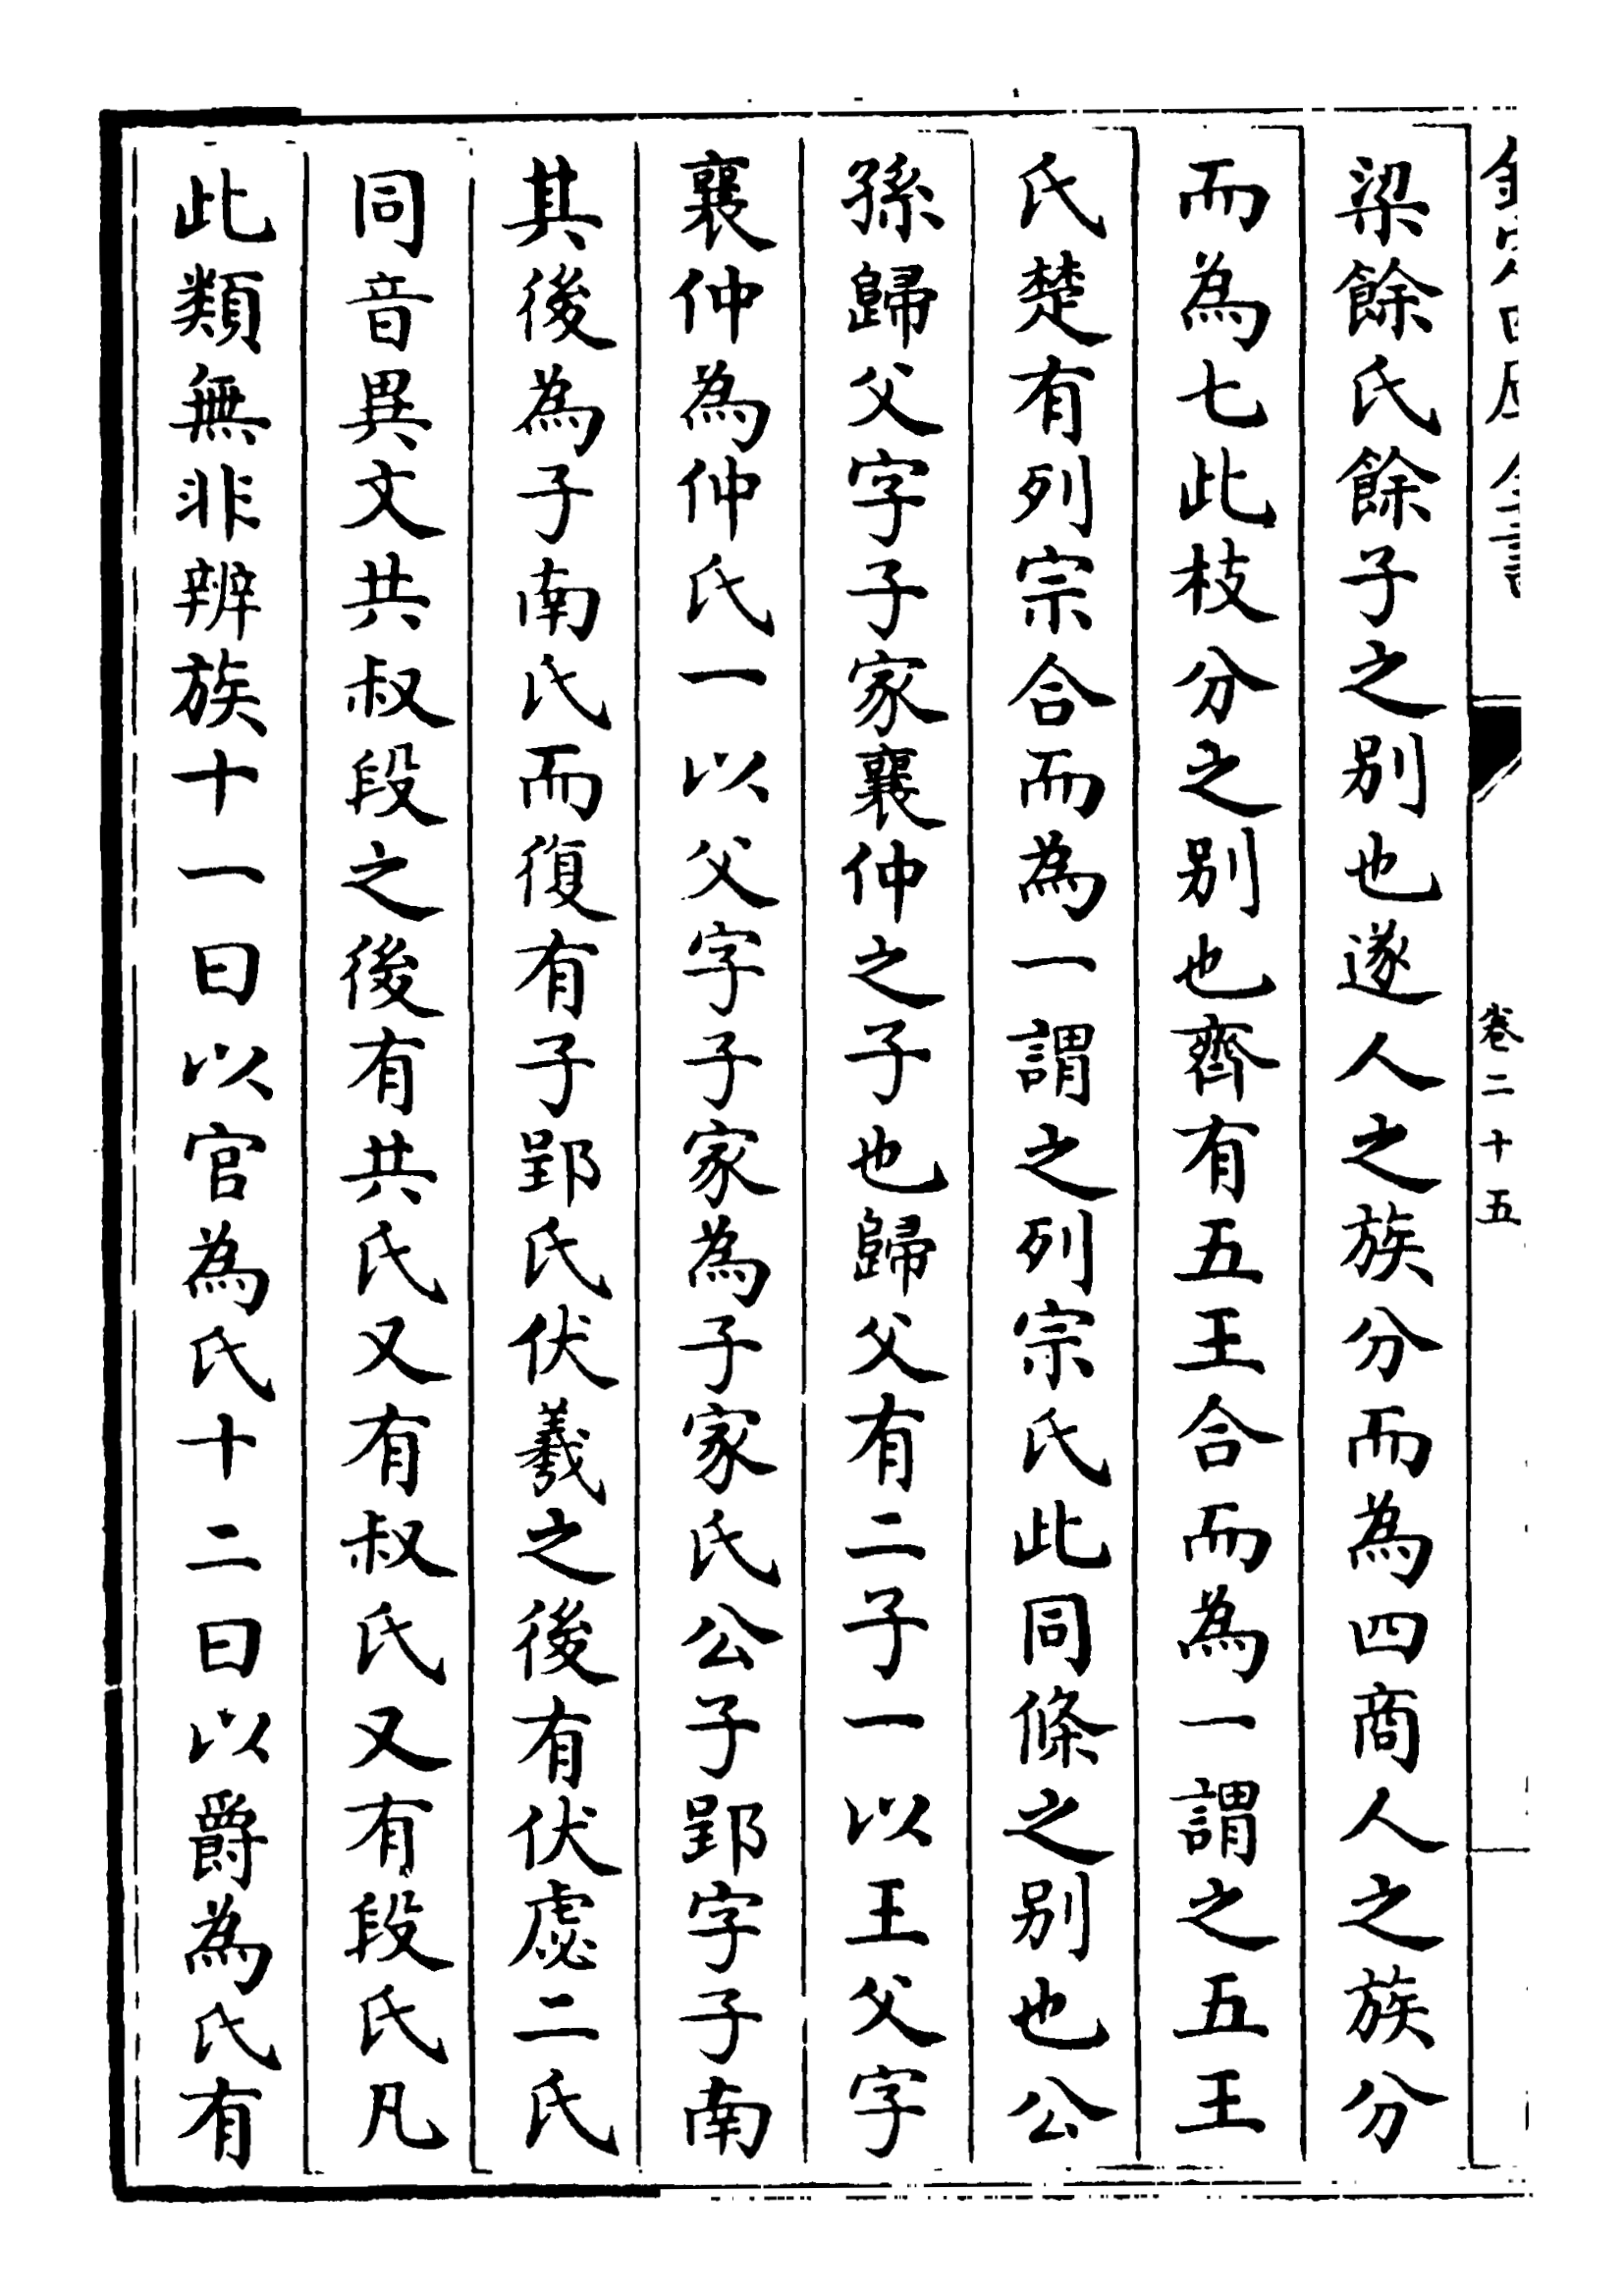 欽定四庫全書
卷二十五
梁餘氏餘子之别也遂人之族分而為四商人之族分
而為七此枝分之别也齊有五王合而為一謂之五王
氏楚有列宗合而為一謂之列宗氏此同條之别也公
孫歸父字子家襄仲之子也歸父有二子一以王父字
襄仲為仲氏一以父字子家為子家氏公子郢字子南
其後為子南氏而復有子郢氏伏羲之後有伏虙二氏
同音異文共叔段之後有共氏又有叔氏又有段氏凡
此類無非辨族十一曰以官為氏十二曰以爵為氏有